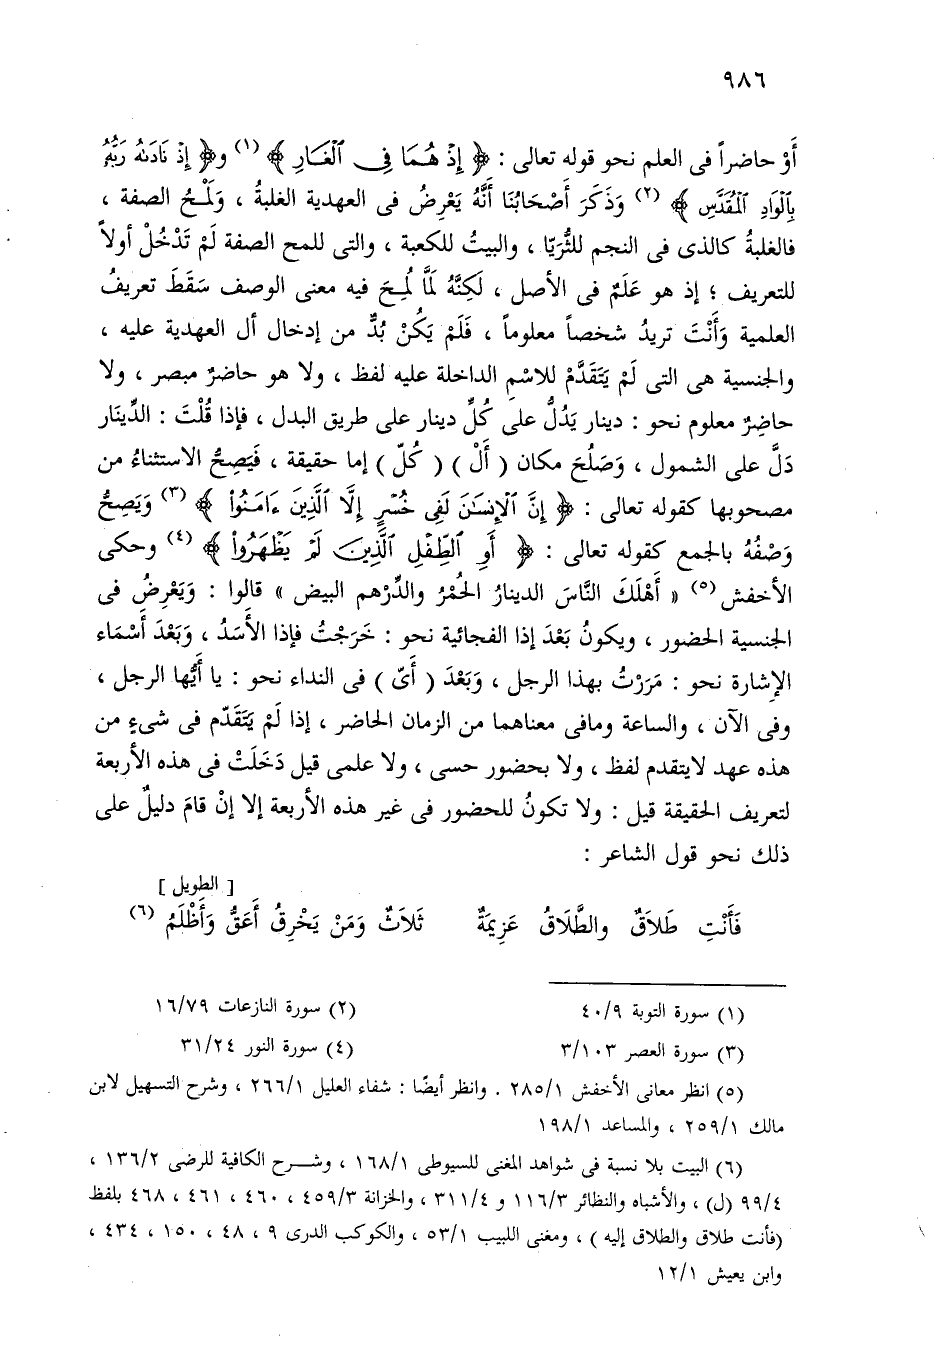 ٩٨٦
أَوْ حاضراً فى العلم نحو قوله تعالى : ﴿ إِذْ هُمَا فِى ٱلْغَارِ ﴾ (١) و﴿ إِذْ نَادَىٰهُ رَبُّهُۥ
بِٱلْوَادِ ٱلْمُقَدَّسِ ﴾ (٢) وَذَكَرَ أَصْحَابُنَا أَنَّهُ يَعْرِضُ فى العهدية الغلبةُ ، وَلَمْحُ الصفة ،
فالغلبةُ كالذى فى النجم للثُّرَيّا ، والبيتُ للكعبة ، والتى للمح الصفة لَمْ تَدْخُلْ أولاً
للتعريف ؛ إذ هو عَلَمٌ فى الأصل ، لَكِنَّهُ لَمَّا لُمِحَ فيه معنى الوصف سَقَطَ تعريفُ
العلمية وَأَنْتَ تريدُ شخصاً معلوماً ، فَلَمْ يَكُنْ بُدٌّ من إدخال أل العهدية عليه ،
والجنسية هى التى لَمْ يَتَقَدَّمْ للاسْمِ الداخلة عليه لفظ ، ولا هو حاضرٌ مبصر ، ولا
حاضِرٌ معلوم نحو : دينار يَدُلُّ على كُلِّ دينار على طريق البدل ، فإذا قُلْتَ : الدِّينَار
دَلَّ على الشمول ، وَصَلُحَ مكان ( أَلْ ) ( كُلّ ) إما حقيقة ، فَيَصِحُّ الاستثناءُ من
مصحوبها كقوله تعالى : ﴿ إِنَّ ٱلْإِنسَٰنَ لَفِى خُسْرٍ إِلَّا ٱلَّذِينَ ءَامَنُوا۟ ﴾ (٣) وَيَصِحُّ
وَصْفُهُ بالجمع كقوله تعالى : ﴿ أَوِ ٱلطِّفْلِ ٱلَّذِينَ لَمْ يَظْهَرُوا۟ ﴾ (٤) وحكى
الأخفش (٥) « أَهْلَكَ النَّاسَ الدينارُ الحُمْرُ والدِّرْهم البيض » قالوا : وَيَعْرِضُ فى
الجنسية الحضور ، ويكونُ بَعْدَ إذا الفجائية نحو : خَرَجْتُ فإذا الأَسَدُ ، وَبَعْدَ أَسْمَاء
الإشارة نحو : مَرَرْتُ بهذا الرجل ، وَبَعْدَ ( أَىّ ) فى النداء نحو : يا أَيُّها الرجل ،
وفى الآن ، والساعة ومافى معناهما من الزمان الحاضر ، إذا لَمْ يَتَقَدّم فى شىءٍ من
هذه عهد لايتقدم لفظ ، ولا بحضور حسى ، ولا علمى قيل دَخَلَتْ فى هذه الأربعة
لتعريف الحقيقة قيل : ولا تكونُ للحضور فى غير هذه الأربعة إلا إنْ قامَ دليلٌ على
ذلك نحو قول الشاعر :
[ الطويل ]
فَأَنْتِ طَلَاقٌ والطَّلَاقُ عَزِيمَةٌ ثَلَاثٌ وَمَنْ يَخْرِقُ أَعَقُّ وَأَظْلَمُ (٦)
(١) سورة التوبة ٤٠/٩ (٢) سورة النازعات ١٦/٧٩
(٣) سورة العصر ٣/١٠٣ (٤) سورة النور ٣١/٢٤
(٥) انظر معانى الأخفش ٢٨٥/١ . وانظر أيضًا : شفاء العليل ٢٦٦/١ ، وشرح التسهيل لابن
مالك ٢٥٩/١ ، والمساعد ١٩٨/١
(٦) البيت بلا نسبة فى شواهد المغنى للسيوطى ١٦٨/١ ، وشرح الكافية للرضى ١٣٦/٢ ،
٩٩/٤ (ل) ، والأشباه والنظائر ١١٦/٣ و ٣١١/٤ ، والخزانة ٤٥٩/٣ ، ٤٦٠ ، ٤٦١ ، ٤٦٨ بلفظ
(فأنت طلاق والطلاق إليه ) ، ومغنى اللبيب ٥٣/١ ، والكوكب الدرى ٩ ، ٤٨ ، ١٥٠ ، ٤٣٤ ،
وابن يعيش ١٢/١